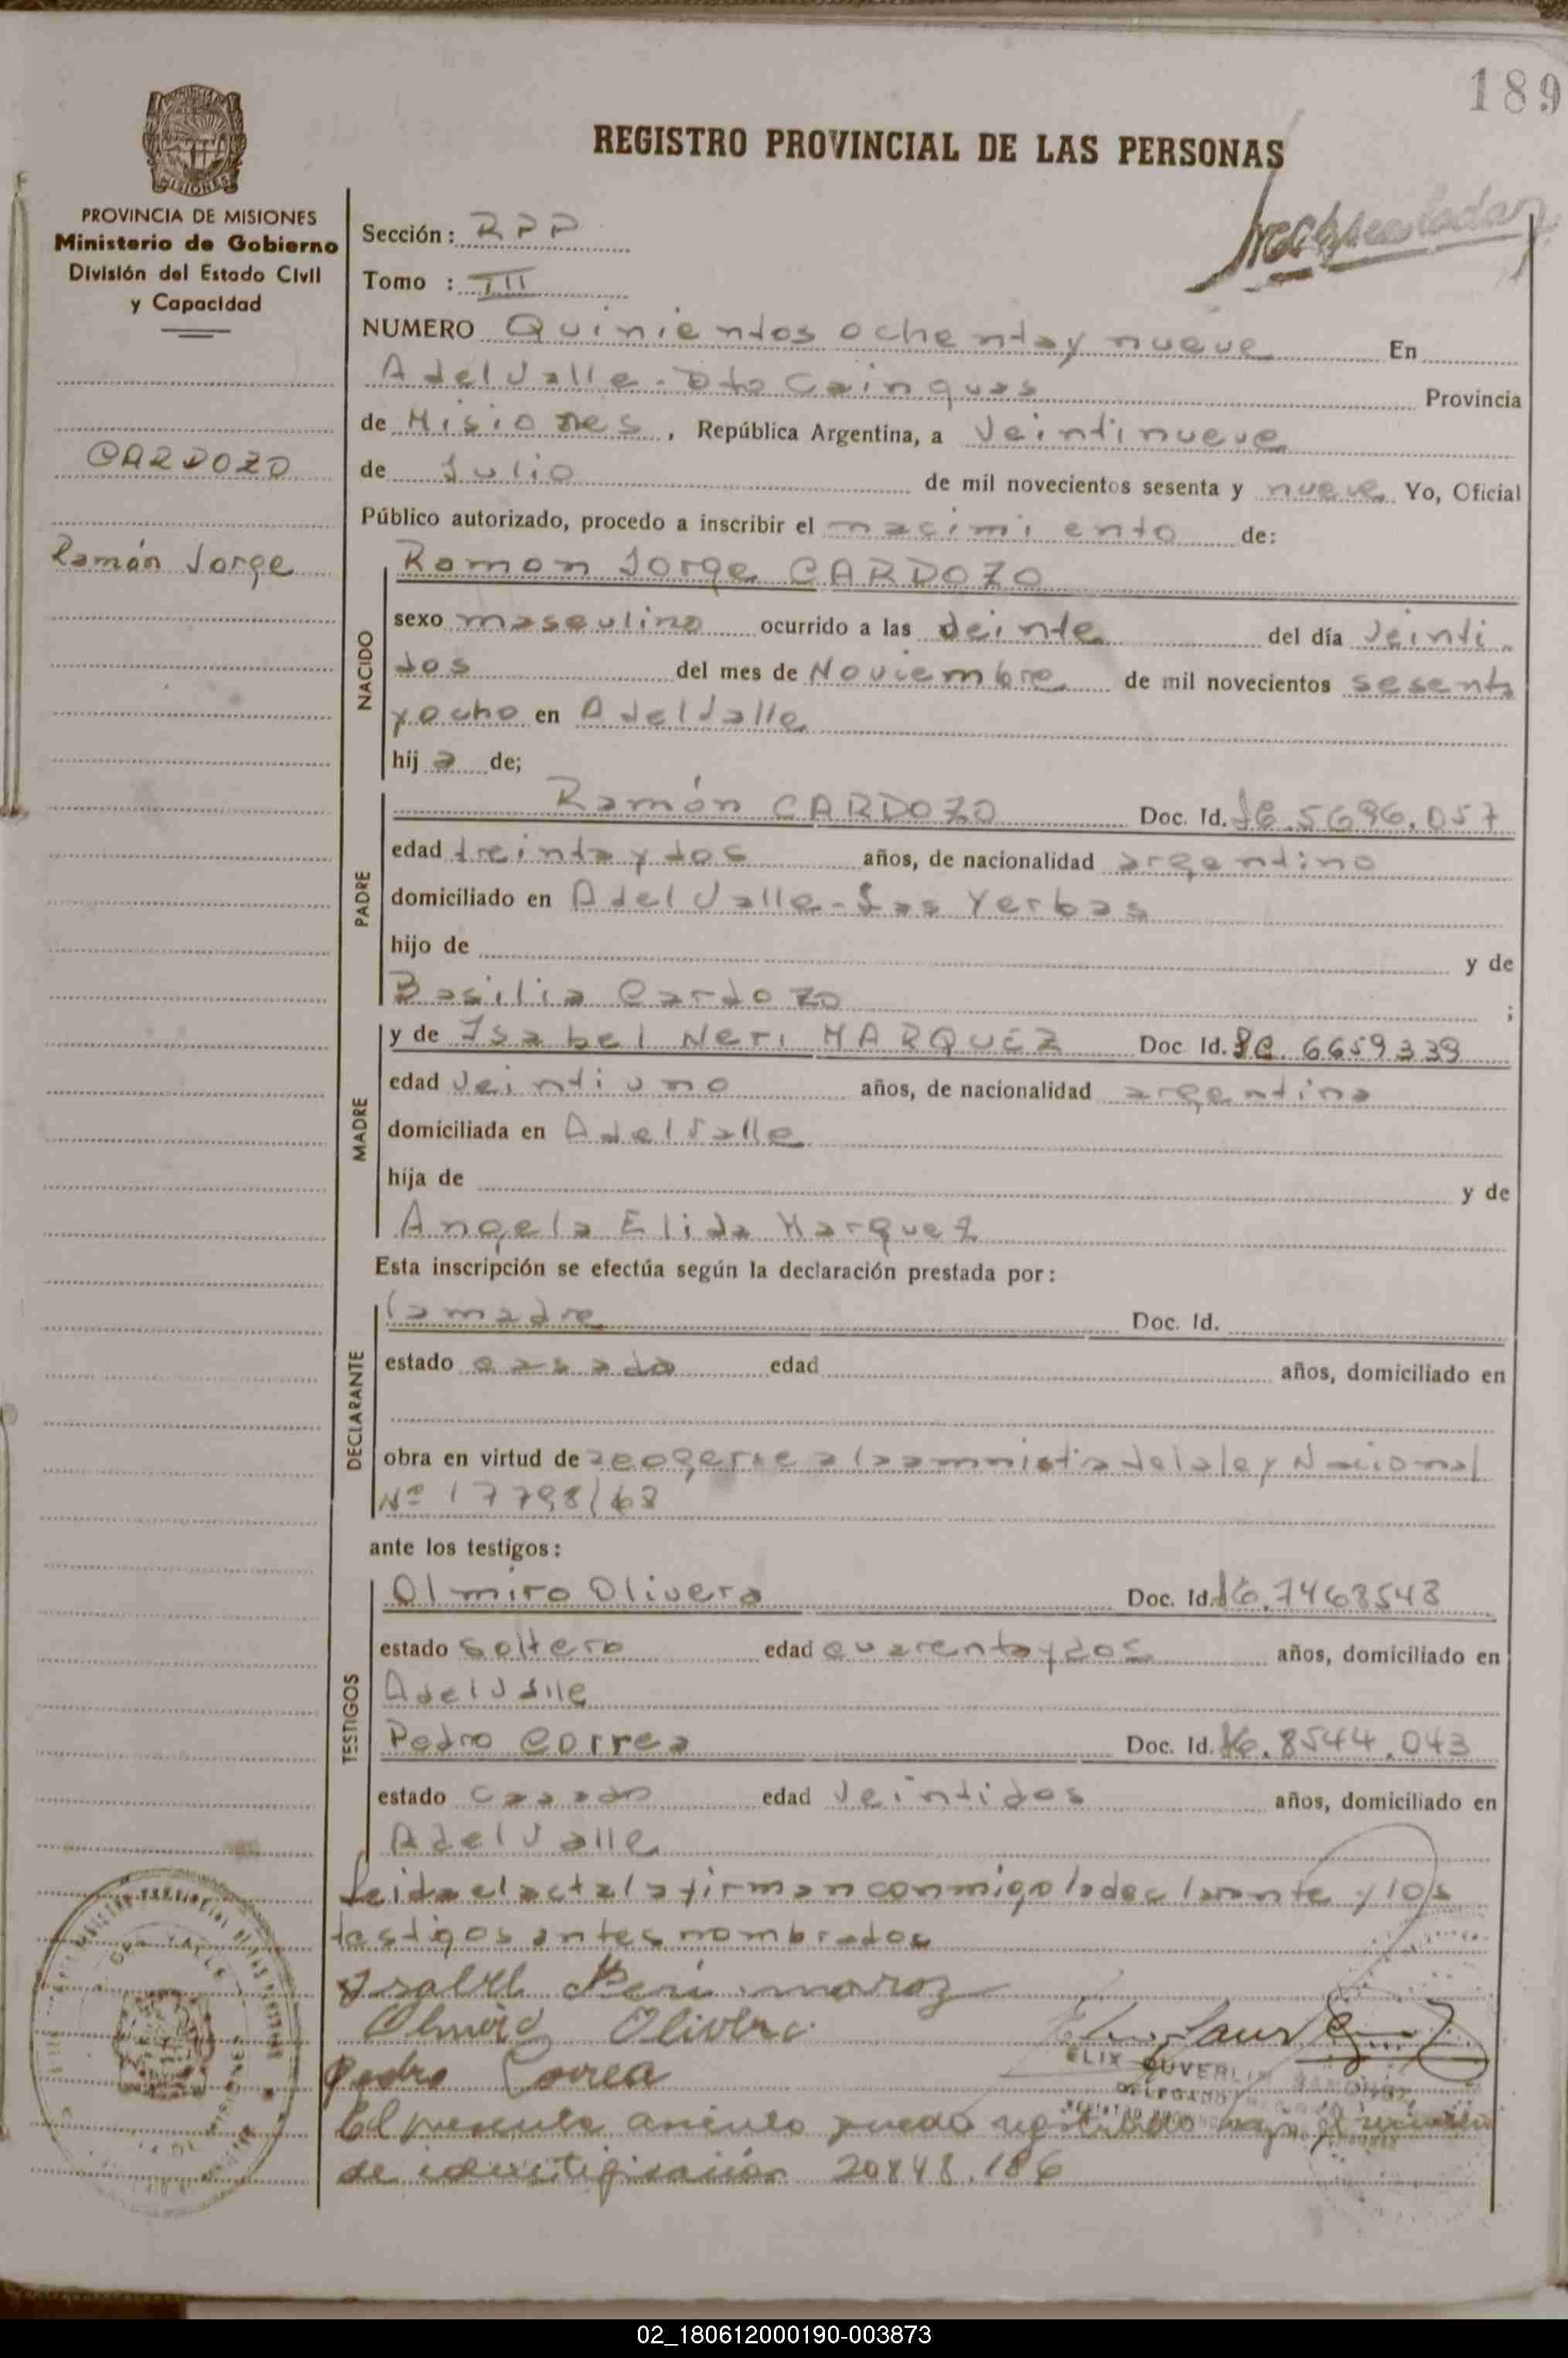 189
REGISTRO PROVINCIAL DE LAS PERSONAS
PROVINCIA DE MISIONES
Ministerio de Gobierno
División del Estado Civil
y Capacidad
CARDOZO
Ramón Jorge
Sección: RPP
Tomo : III
NUMERO Quinientos ochenta y nueve En
A del Valle - Dto Cainguas Provincia
de Misiones, República Argentina, a Veintinueve
de Julio de mil novecientos sesenta y nueve Yo, Oficial
Público autorizado, procedo a inscribir el nacimiento de:
NACIDO
Ramon Jorge CARDOZO
sexo masculino ocurrido a las veinte del día Veinti
dos del mes de Noviembre de mil novecientos sesenta
y ocho en A del Valle
hij o de;
PADRE
Ramón CARDOZO Doc. Id. 5696.057
edad treinta y dos años, de nacionalidad argentino
domiciliado en A del Valle - Las Yerbas
hijo de y de
Basilia Cardozo ;
MADRE
y de Isabel Neri MARQUEZ Doc Id. LC. 6659339
edad Veintiuno años, de nacionalidad argentina
domiciliada en A del Valle
hija de y de
Angela Elida Marquez
Esta inscripción se efectúa según la declaración prestada por:
DECLARANTE
la madre Doc. Id.
estado casada edad años, domiciliado en
obra en virtud de acogerse a la amnistia de la ley Nacional
Nº 17798/68
ante los testigos:
TESTIGOS
Olmiro Olivera Doc. Id. 7468548
estado soltero edad cuarenta y dos años, domiciliado en
A del Valle
Pedro Correa Doc. Id. 8544.043
estado casado edad Veintidos años, domiciliado en
A del Valle
Leida el acta la firman conmigo la declarante y los
testigos antes nombrados
Isabel Neri
Olmiro Olivera
Pedro Correa
DELEGADO
El presente queda
de identificación 20848.186
02_180612000190-003873